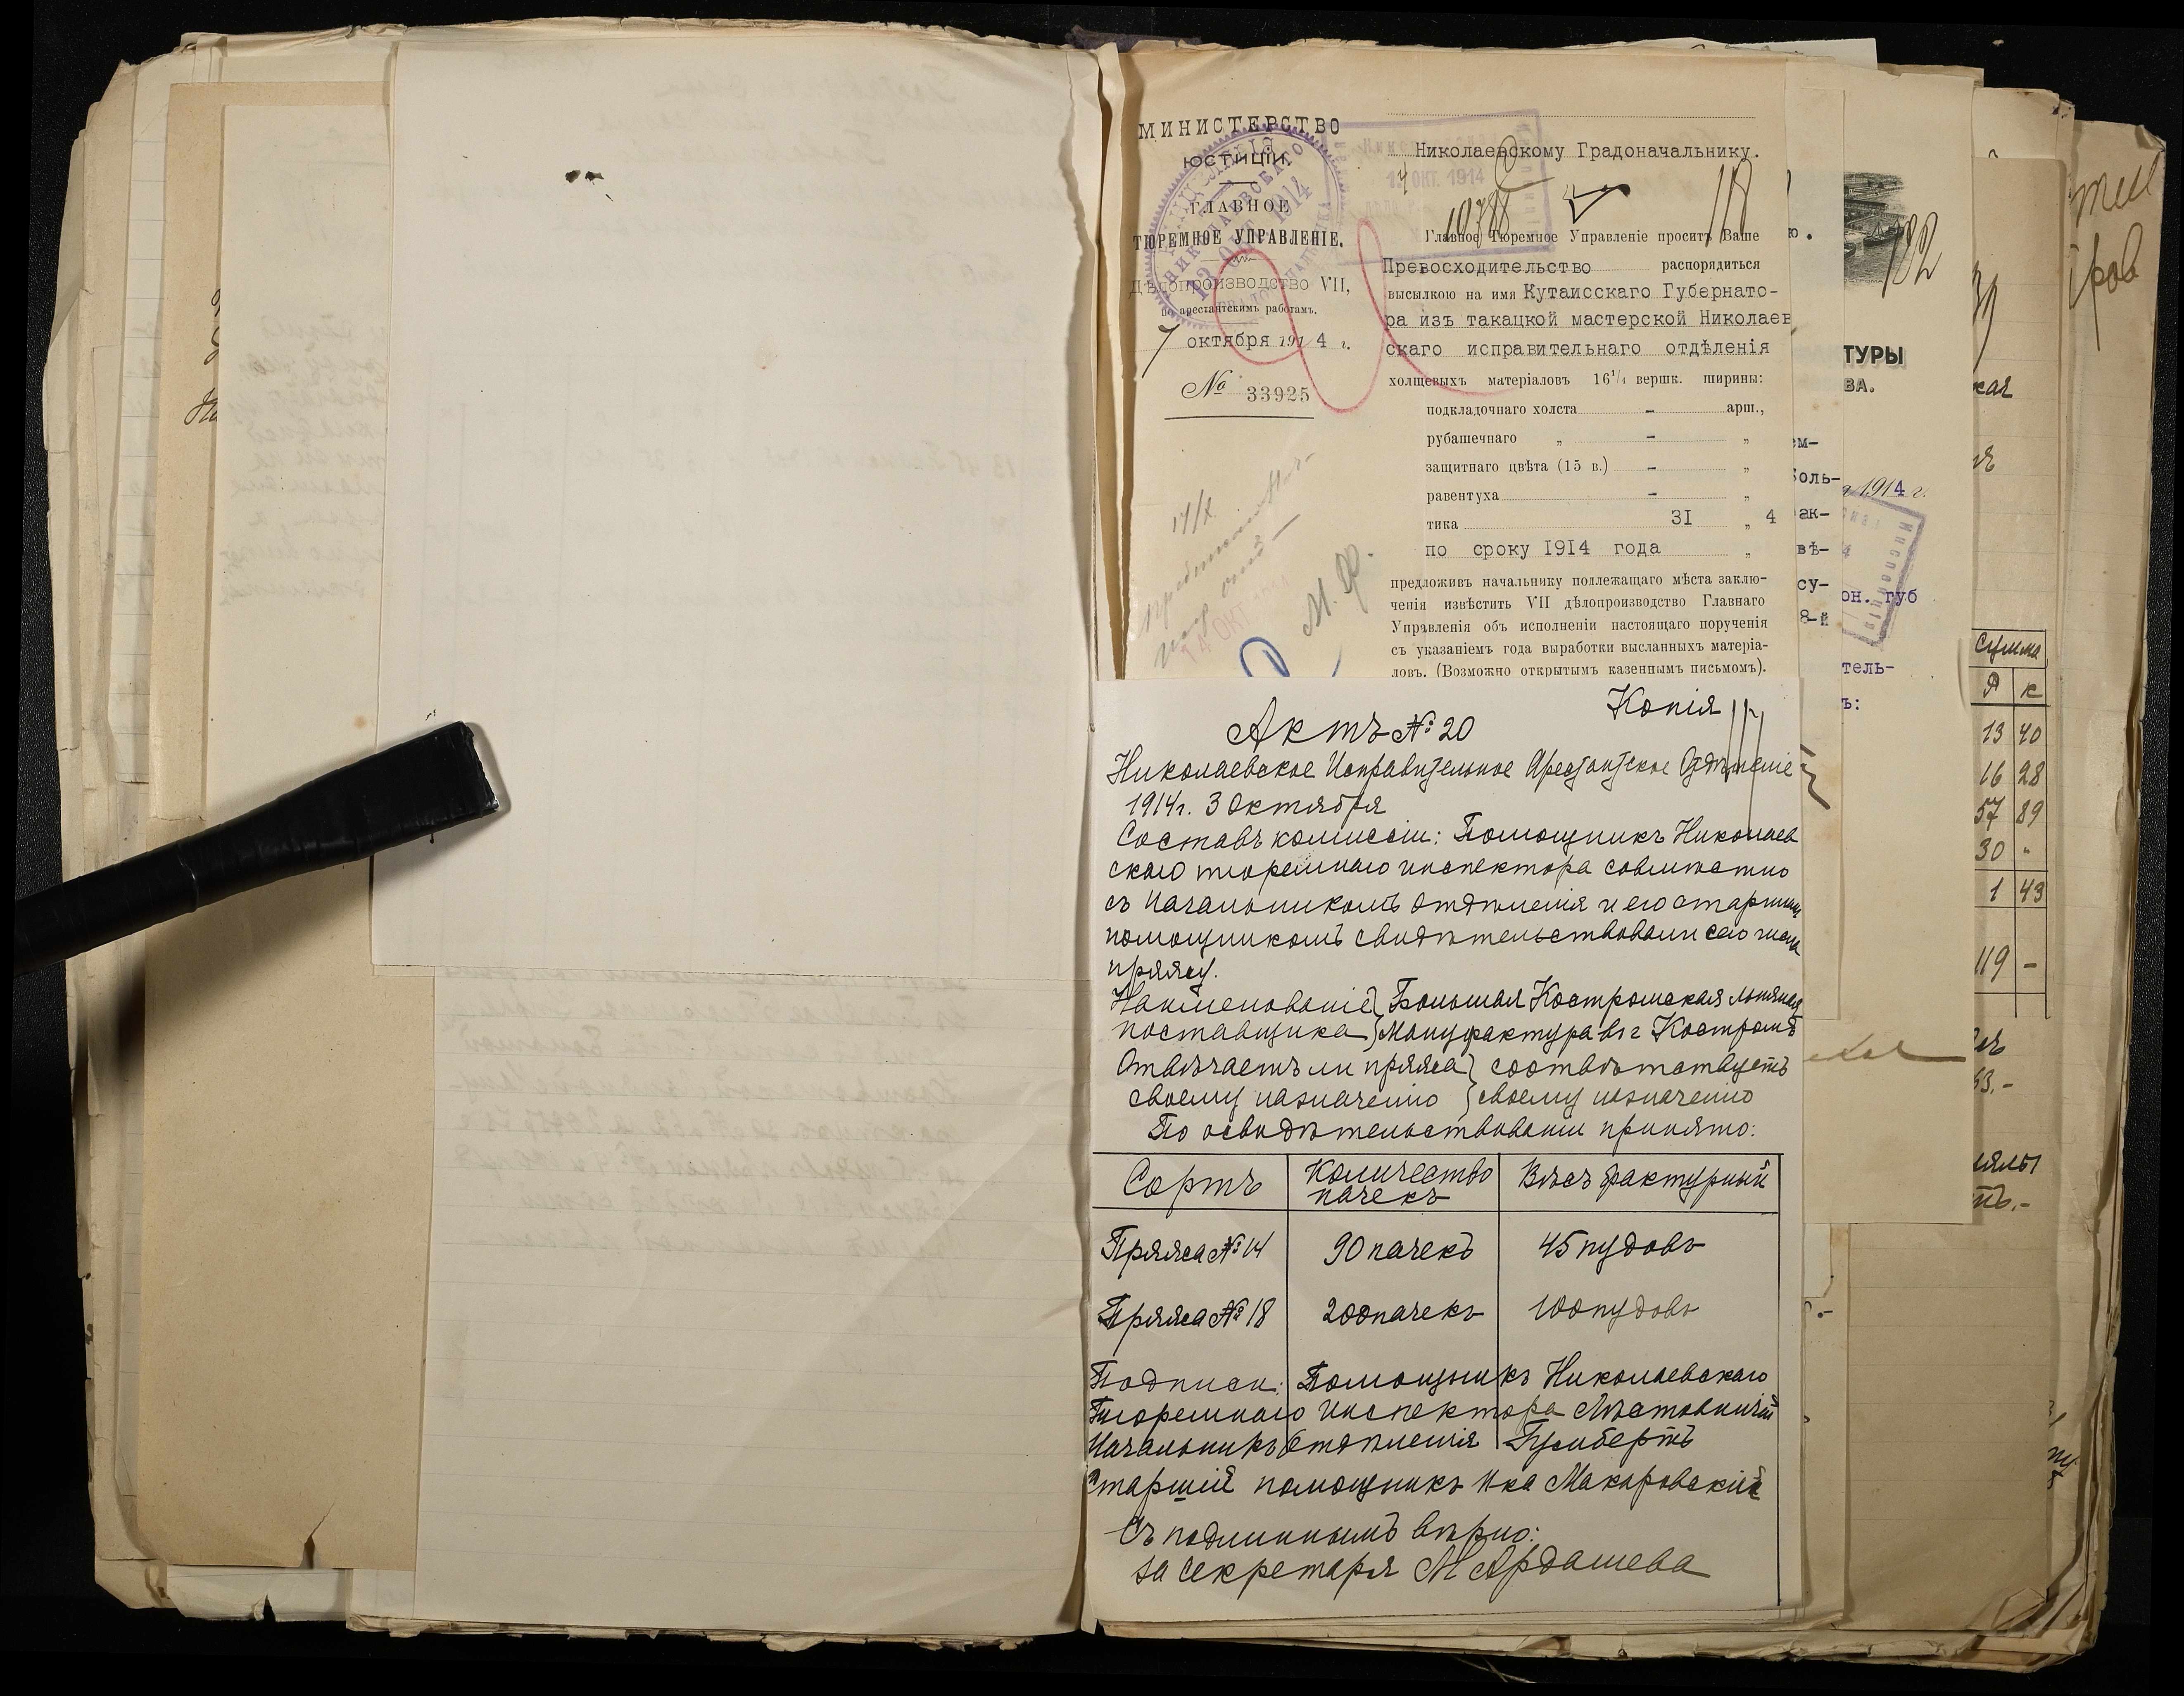 МИНИСТЕРСТВО
ЮСТИЦІИ.
ГЛАВНОЕ
ТЮРЕМНОЕ УПРАВЛЕНІЕ.
Дѣлопроизводство VII,
по арестантскимъ работамъ.
7 октября 1914 г.
№ 33925
13 ОКТ 1914
Николаевскому Градоначальнику.
ОКТ. 1914
Главное Тюремное Управленіе проситъ Ваше
Превосходительство распорядиться
высылкою на имя Кутаисскаго Губернато-
ра изъ такацкой мастерской Николаев
скаго исправительнаго отдѣленія
холщевыхъ матеріаловъ 16¹/₄ вершк. ширины:
подкладочнаго холста - арш.,
рубашечнаго „ - „
защитнаго цвѣта (15 в.) - „
равентуха - „
тика 31 „ 4
по сроку 1914 года „
предложивъ начальнику подлежащаго мѣста заклю-
ченія извѣстить VII дѣлопроизводство Главнаго
Управленія объ исполненіи настоящаго порученія
съ указаніемъ года выработки высланныхъ матеріа-
ловъ. (Возможно открытымъ казеннымъ письмомъ).
Копія
Актъ № 20
Николаевское Исправительное Арестантское Отдѣленіе
1914 г. 3 Октября
Составъ комиссіи: Помощникъ Николаев
скаго тюремнаго инспектора совмѣстно
съ Начальникомъ Отдѣленія и его старшим
помощникомъ свидѣтельствовали сего числа
пряжу.
Наименованіе } Большая Костромская льняная
поставщика } Мануфактура въ г Костромѣ
Отвѣчаетъ ли пряжа } соотвѣтствуетъ
своему назначенію } своему назначенію
По освидѣтельствованіи принято:
Сортъ Количество пачекъ Вѣсъ фактурный
Пряжа № 14 90 пачекъ 45 пудовъ
Пряжа № 18 200 пачекъ 100 пудовъ
Подписи: Помощникъ Николаевскаго
Тюремнаго Инспектора
Начальникъ Отдѣленія Гумбертъ
Старшій помощникъ И-ка Макаровскій
Съ подлиннымъ вѣрно:
За Секретаря М Ардашева
182
ТУРЫ
ВА.
1914 г.
он. губ
тель-
ъ:
ем-
боль-
ак-
вѣ-
су-
8-й
Сумма
Р к
13 40
16 28
57 89
30 -
1 43
119 -